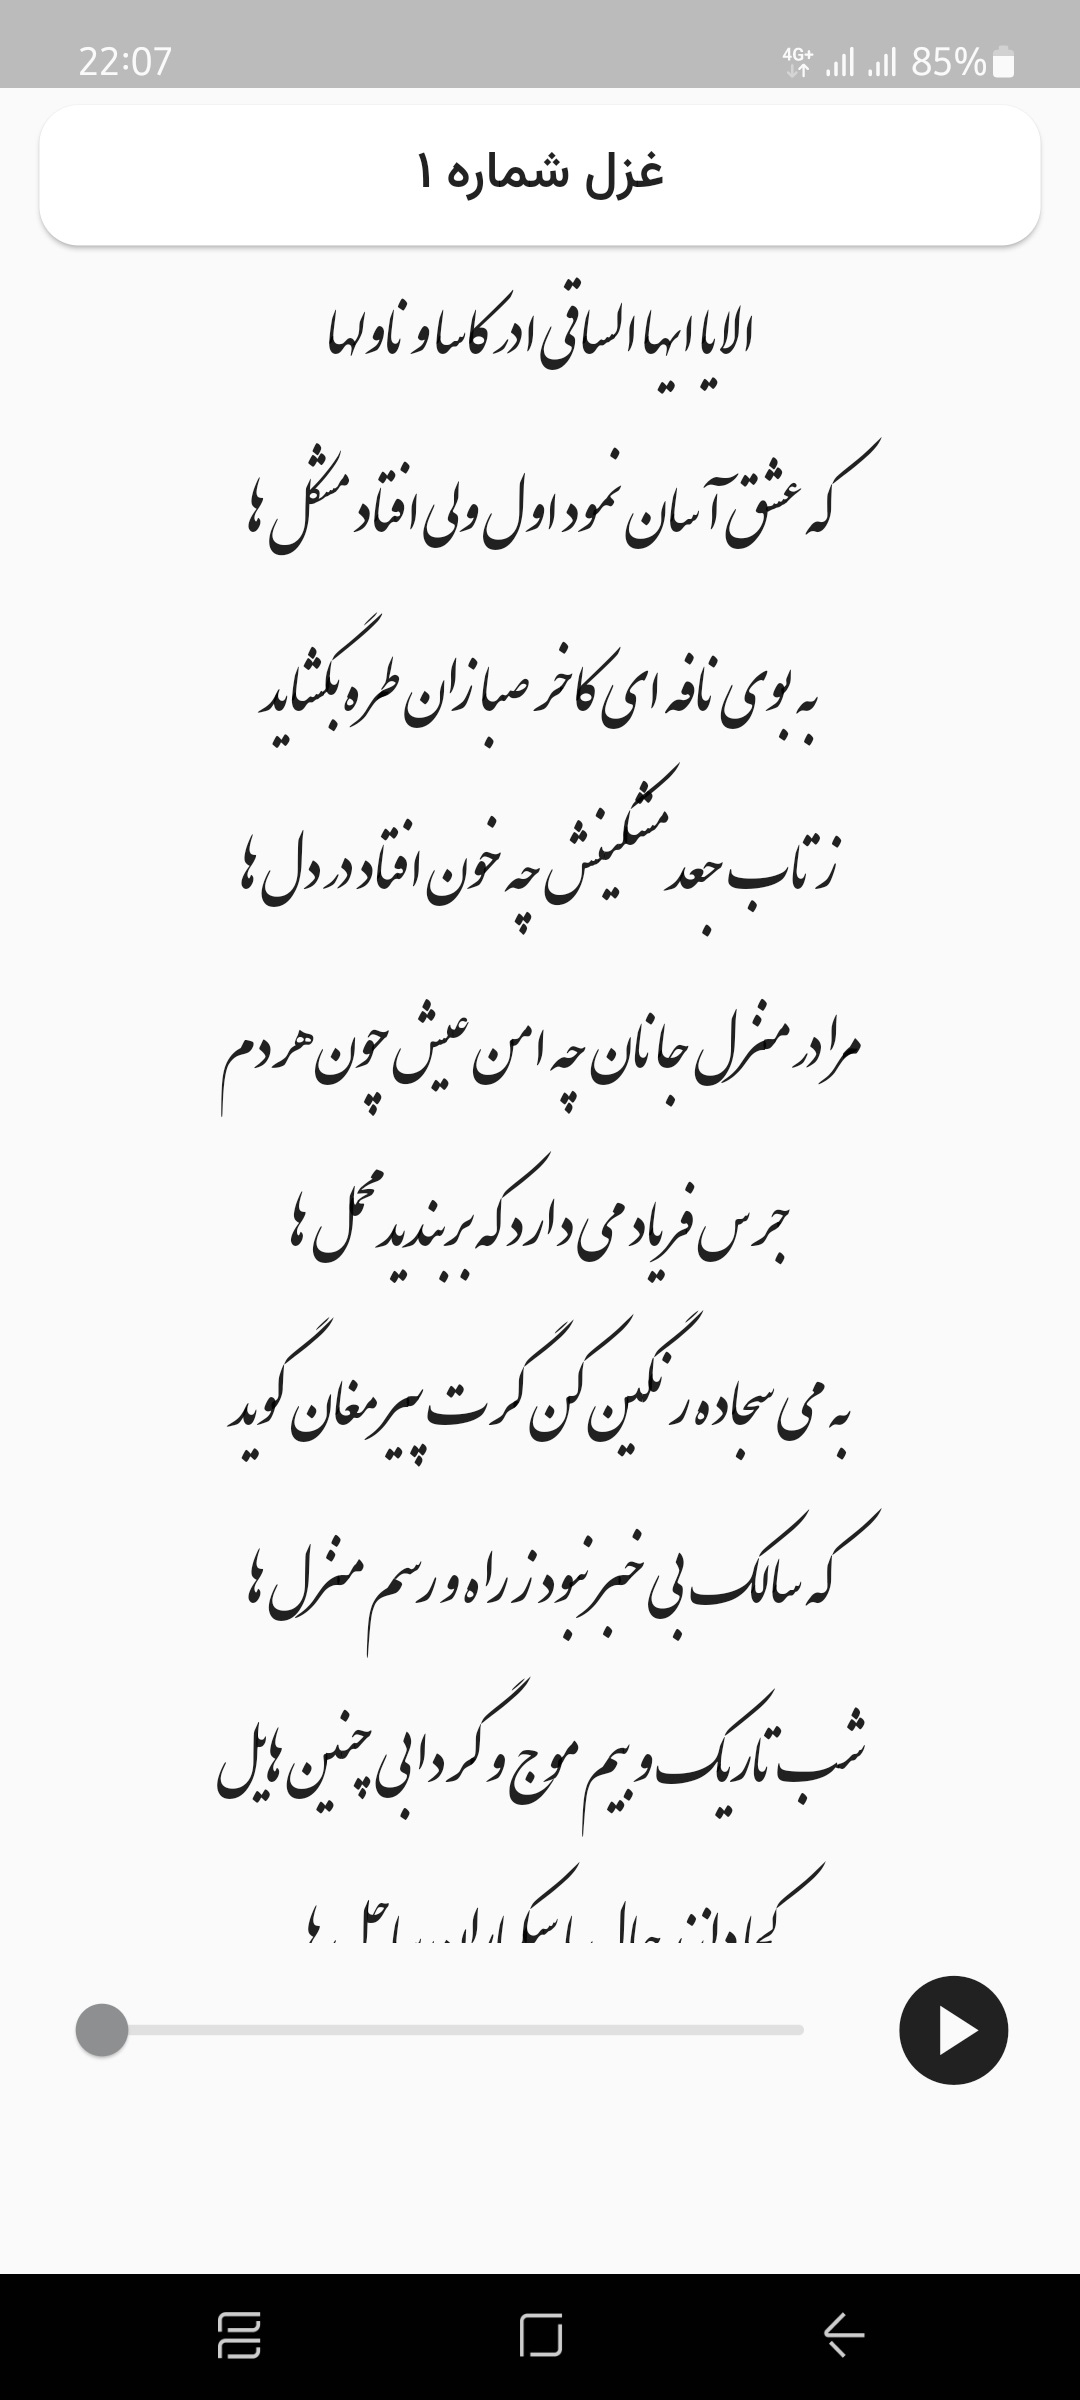 22:07
4G+
85%
غزل شماره ۱
الا یا ایها الساقی ادر کاسا و ناولها
که عشق آسان نمود اول ولی افتاد مشکل ها
به بوی نافه ای کاخر صبا زان طره بگشاید
ز تاب جعد مشکینش چه خون افتاد در دل ها
مرا در منزل جانان چه امن عیش چون هر دم
جرس فریاد می دارد که بربندید محمل ها
به می سجاده رنگین کن گرت پیر مغان گوید
که سالک بی خبر نبود ز راه و رسم منزل ها
شب تاریک و بیم موج و گردابی چنین هایل
کجا دانند حال ما سبکباران ساحل ها